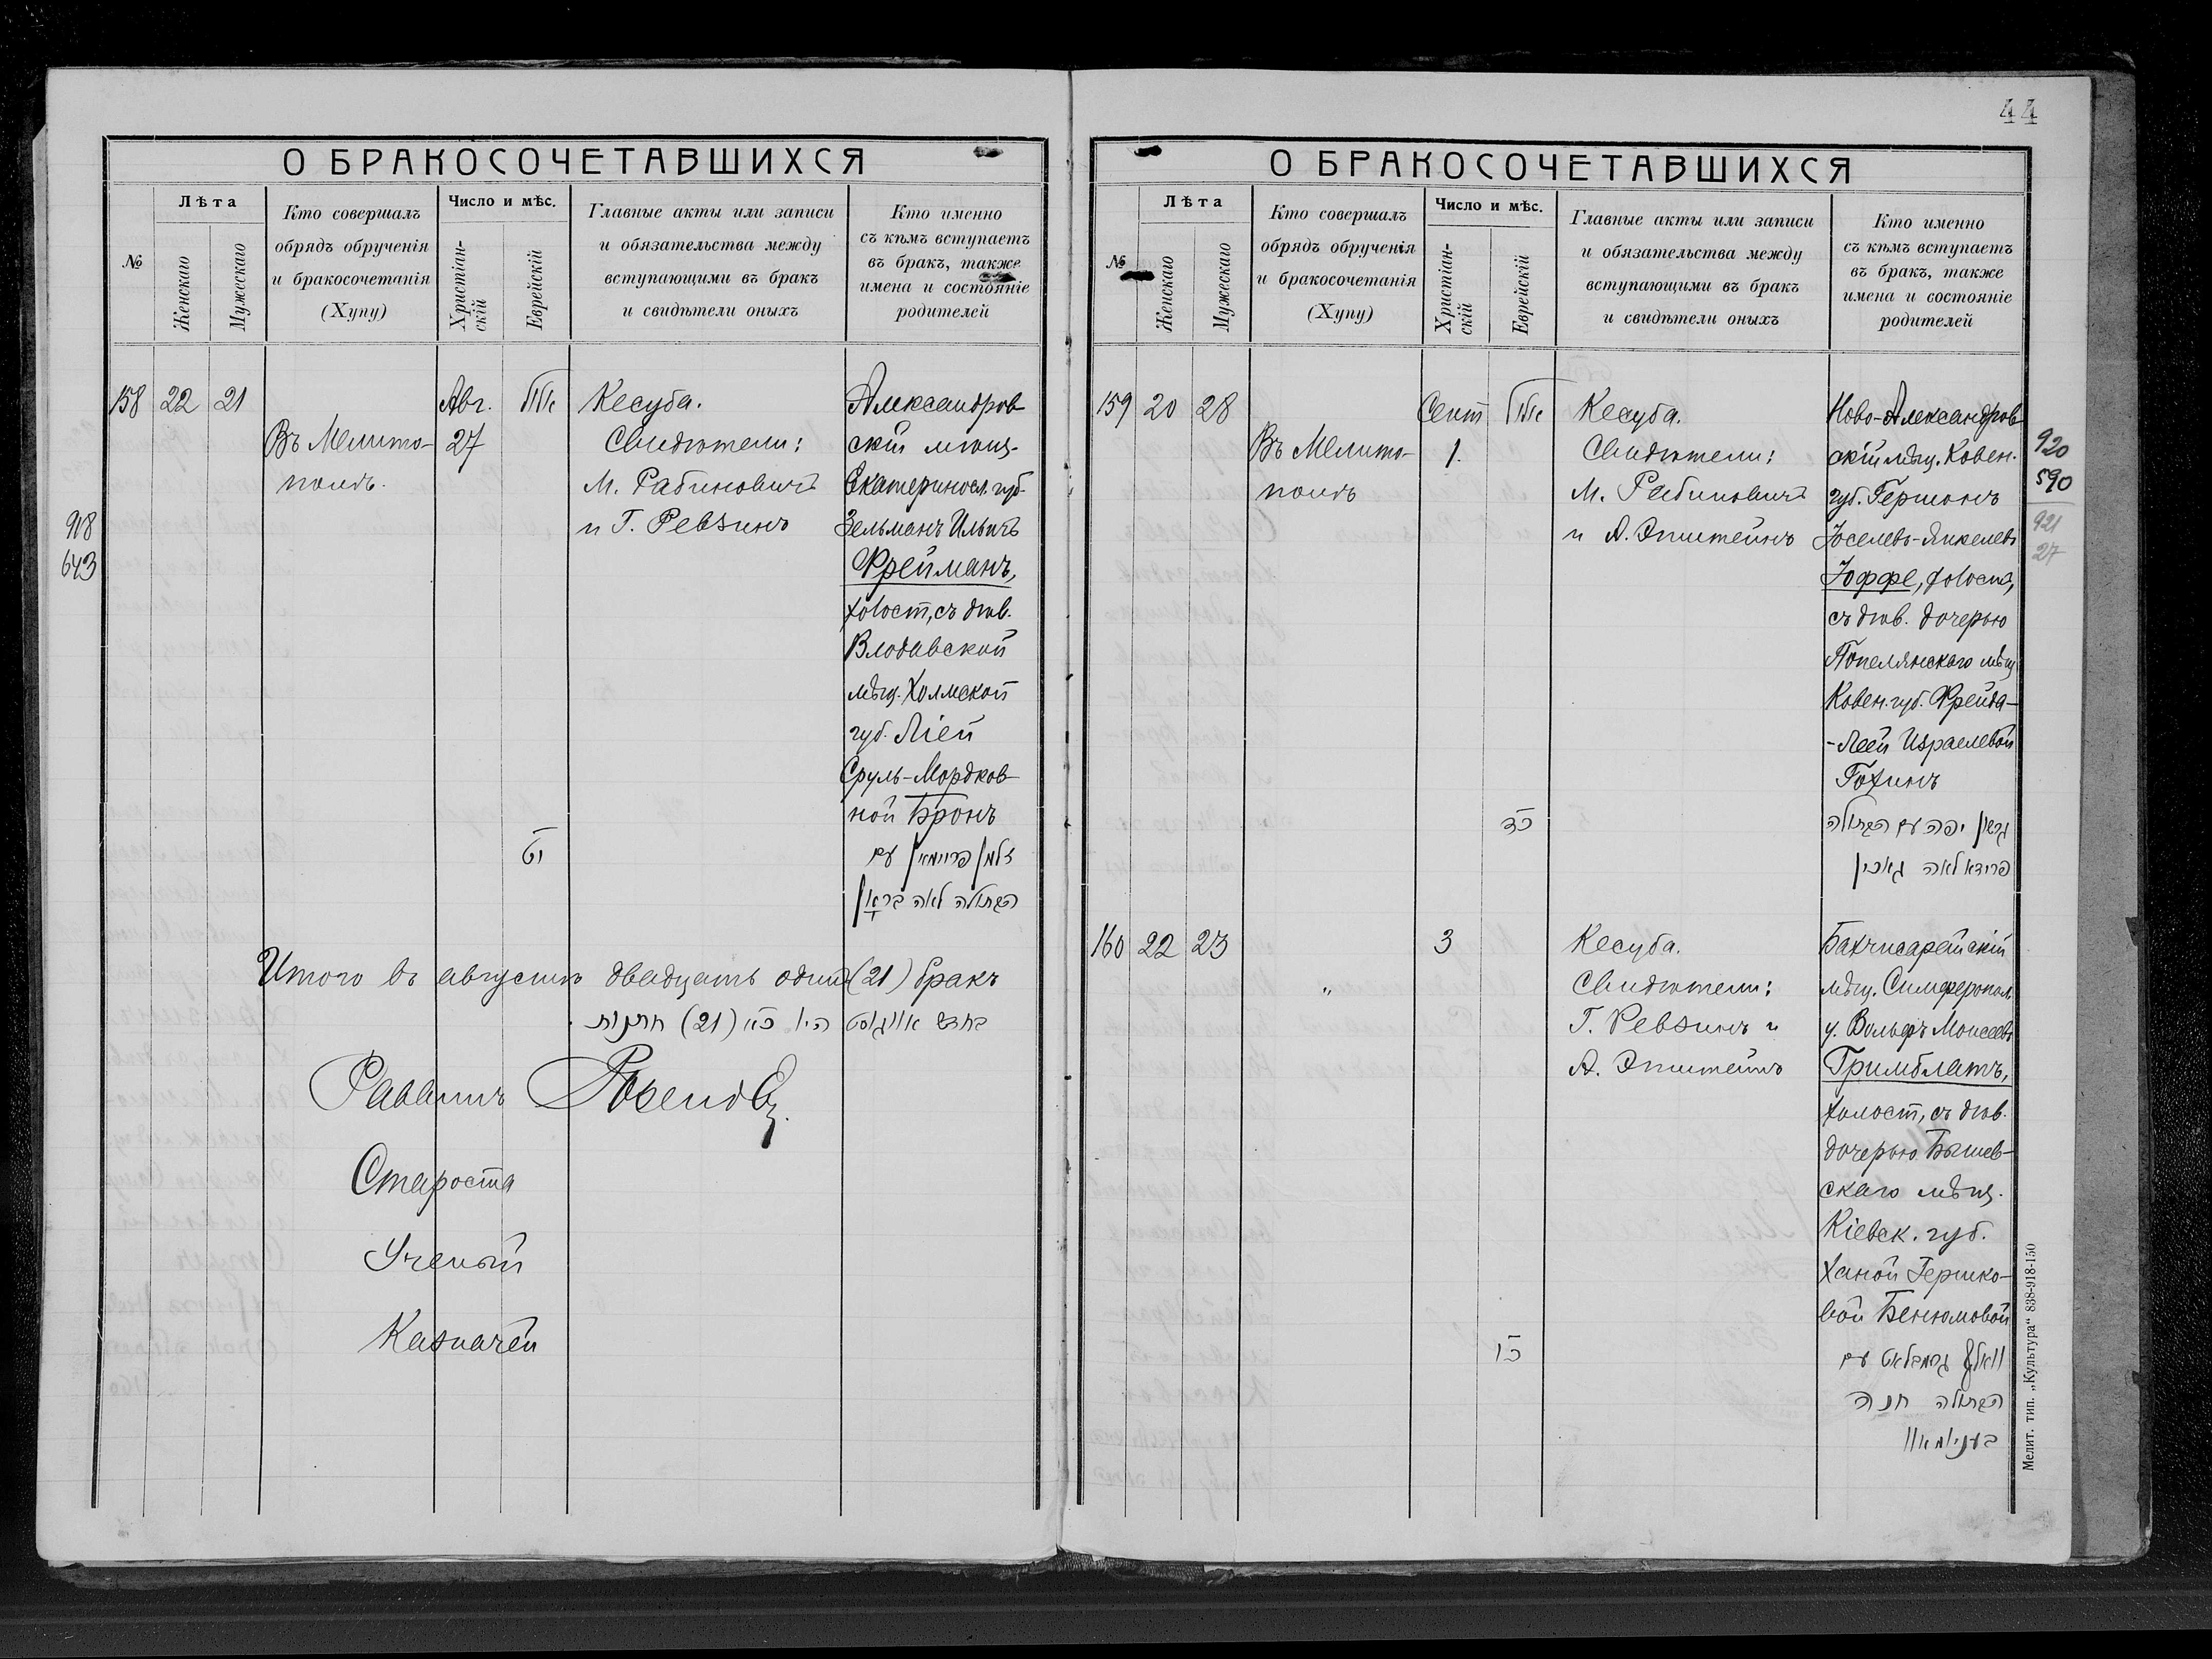 44
О БРАКОСОЧЕТАВШИХСЯ
№
Лѣта
Женскаго
Мужескаго
Кто совершалъ
обрядъ обрученія
и бракосочетанія
(Хупу)
Число и мѣс.
Христіан-
скій
Еврейскій
Главные акты или записи
и обязательства между
вступающими въ бракъ
и свидѣтели оныхъ
Кто именно
съ кѣмъ вступаетъ
въ бракъ, также
имена и состояніе
родителей
158 22 21
Въ Мелито-
полѣ.
Авг.
27
אלול
יט
Кесуба.
Свидѣтели:
М. Рабиновичъ
и Г. Ревзинъ
Александров-
скій мѣщ.
Екатериносл. губ.
Зельманъ Ильичъ
Фрейманъ,
холост, съ дѣв.
Влодавской
мѣщ. Холмской
губ. Ліей
Сруль-Мордков-
ной Бронъ
זלמן פריימאן עם
הבתולה לאה בראן
918
643
Итого въ августѣ двадцать одинъ (21) бракъ
בחדש אויגוסט היו כא (21) חתנות
Раввинъ
Староста
Ученый
Казначей
О БРАКОСОЧЕТАВШИХСЯ
№
Лѣта
Женскаго
Мужескаго
Кто совершалъ
обрядъ обрученія
и бракосочетанія
(Хупу)
Число и мѣс.
Христіан-
скій
Еврейскій
Главные акты или записи
и обязательства между
вступающими въ бракъ
и свидѣтели оныхъ
Кто именно
съ кѣмъ вступаетъ
въ бракъ, также
имена и состояніе
родителей
159 20 28
Въ Мелито-
полѣ
Сент
1.
אלול
כד
Кесуба.
Свидѣтели:
М. Рабиновичъ
и А. Эпштейнъ
Ново-Александров-
скій мѣщ. Ковен.
губ. Гершонъ
Іоселевъ-Янкелевъ
Іоффе, холост,
съ дѣв. дочерью
Попелянскаго мѣщ.
Ковен. губ. Фрейда-
-Леей Израелевой
Гохинъ
גרשון יפה עם הבתולה
פרידא לאה גאכין
920
590
921
27
160 22 23
"
3
כו
Кесуба.
Свидѣтели:
Г. Ревзинъ и
А. Эпштейнъ
Бахчисарайскій
мѣщ. Симферопол.
у. Вольфъ Моисеевъ
Гримблатъ,
холост, съ дѣв.
дочерью Бышев-
скаго мѣщ.
Кіевск. губ.
Ханой Гершко-
вой Бенюмовой
וואלף גרמבלאט עם
הבתולה חנה
Мелит. тип. „Культура" 838-918-150